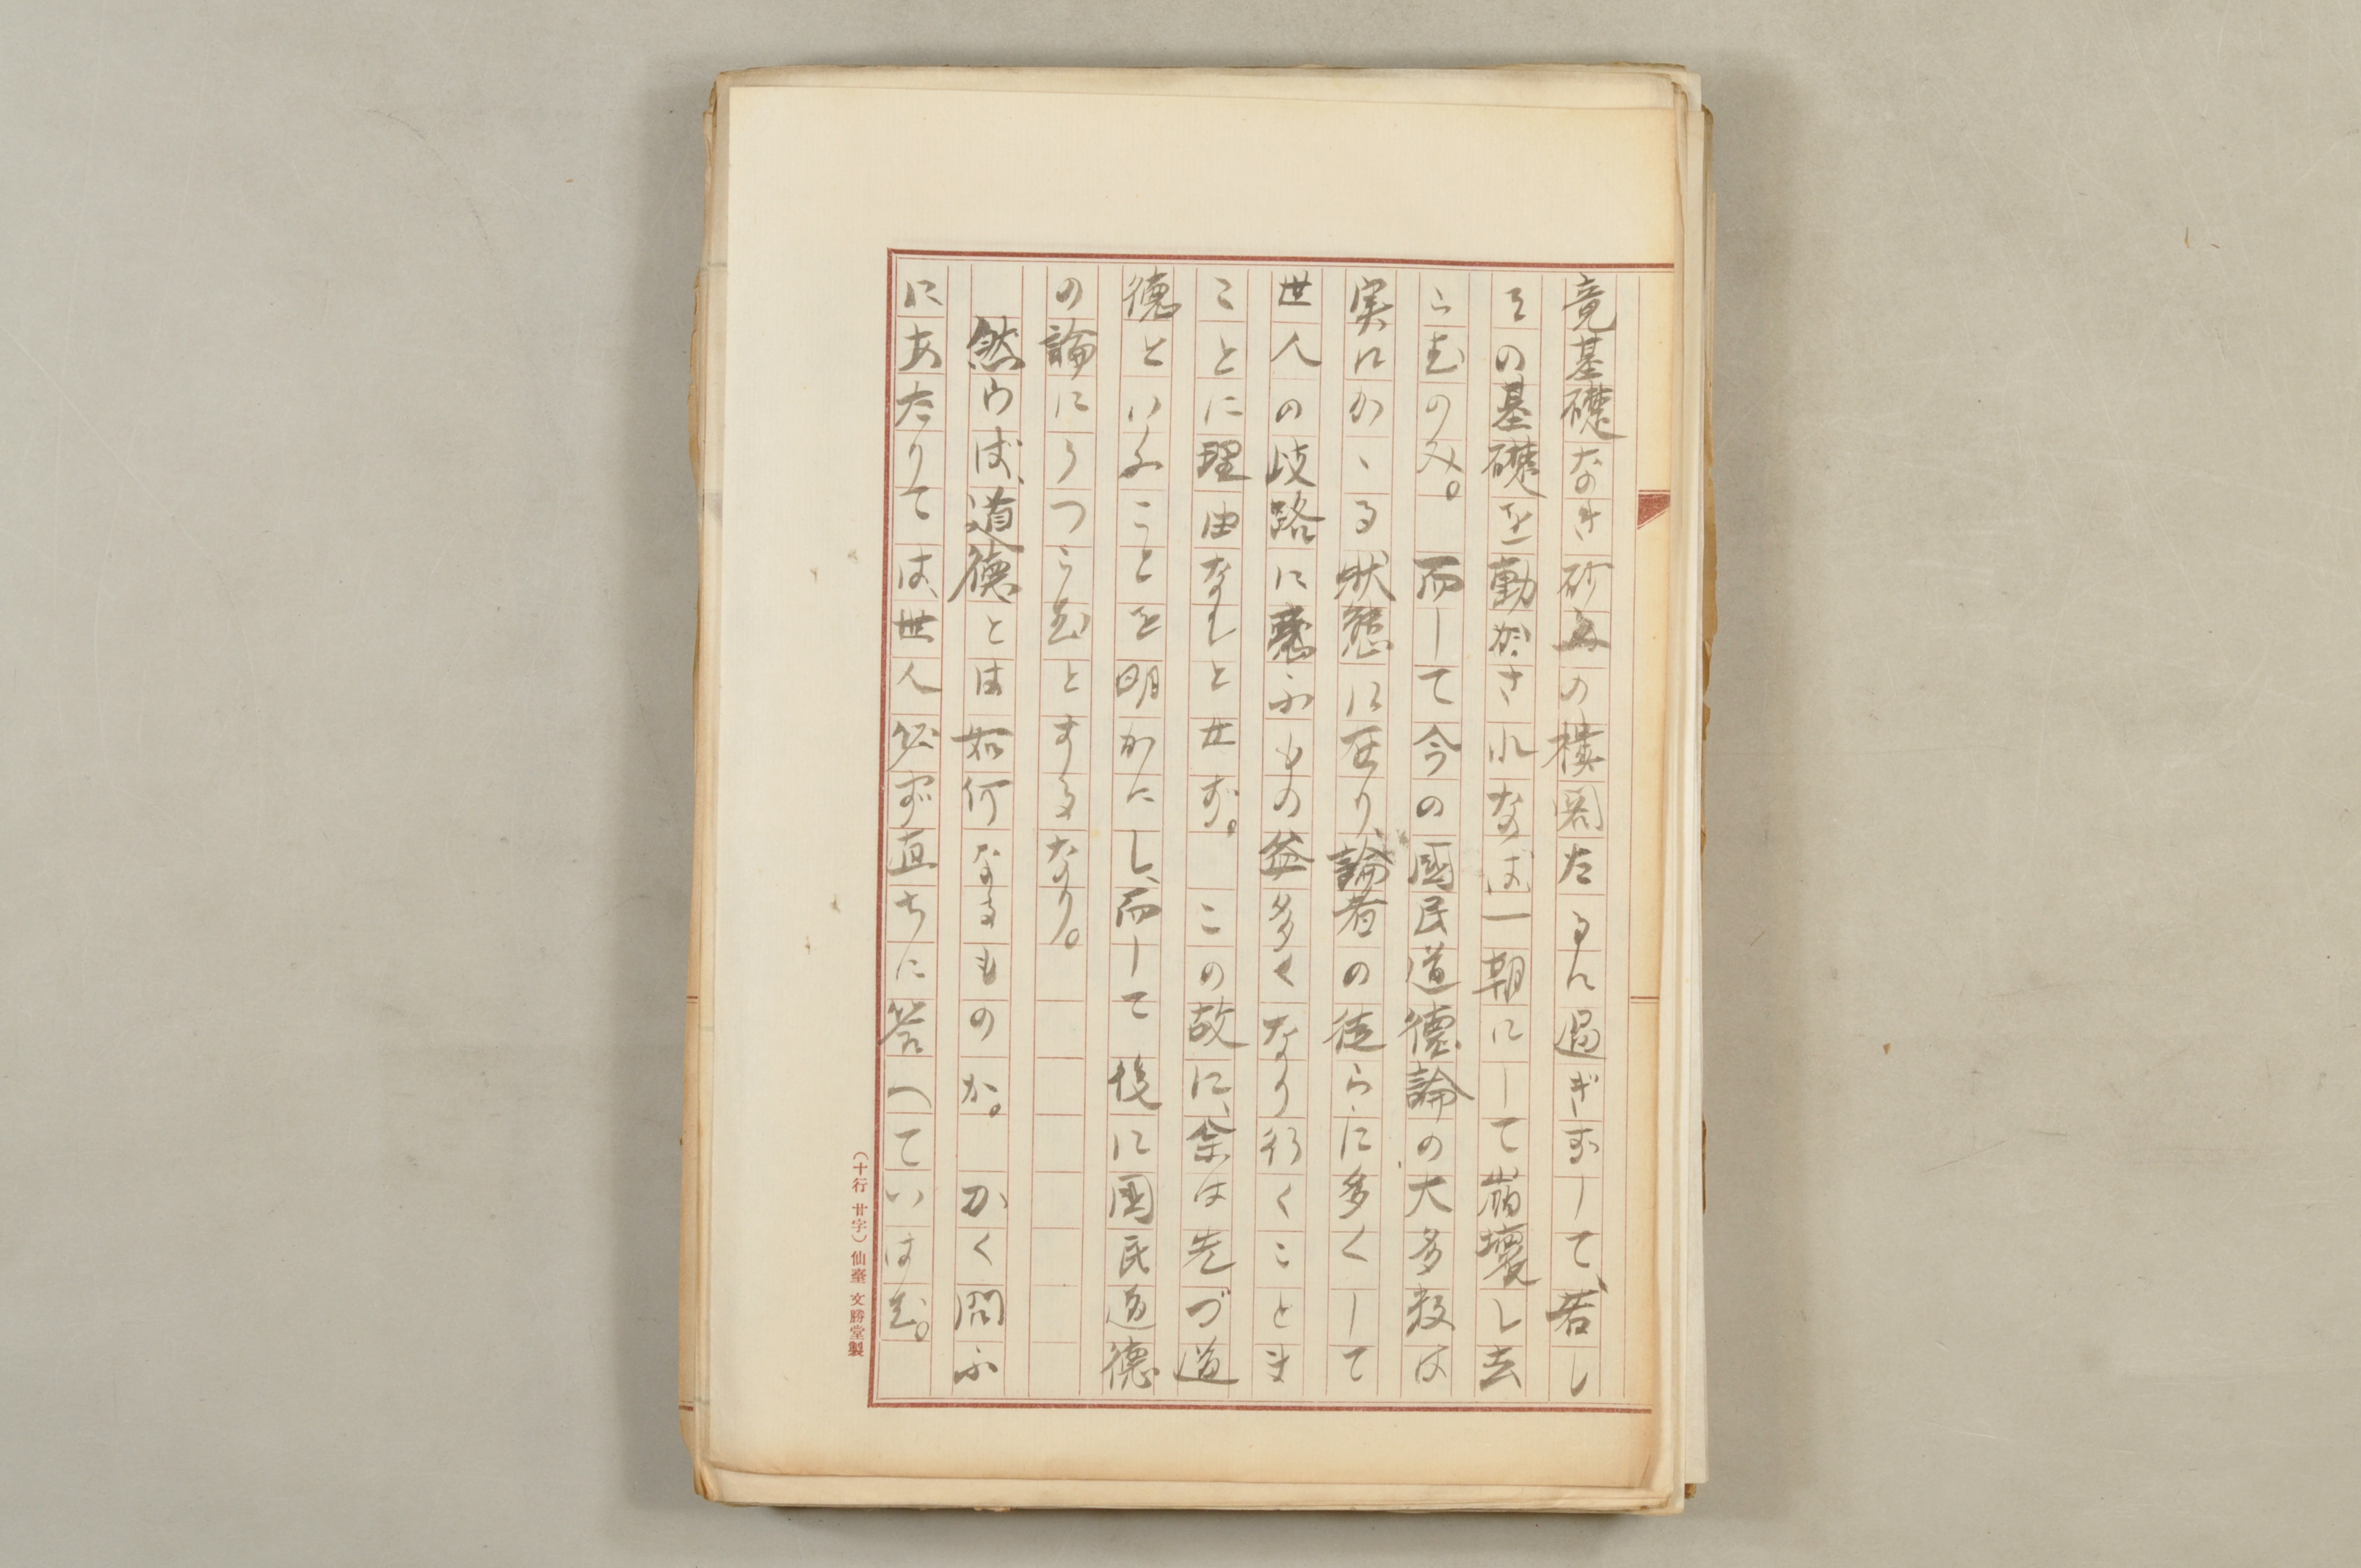 竟基礎なき砂上の樓閣たるに過ぎずして、若し
その基礎を動かされなば一朝にして崩壊し去
らむのみ。　而して今の國民道徳論の大多数は
実にかゝる状態に在り、論者の徒らに多くして
世人の岐路に惑ふもの益多くなり行くことま
ことに理由なしとせず。　この故に、余は先づ道
徳といふことを明かにし、而して後に國民道徳
の論にうつらむとするなり。
　然らば、道徳とは如何なるものか。　かく問ふ
にあたりては、世人必ず直ちに答へていはむ。
（十行 廿字）仙臺 文勝堂製